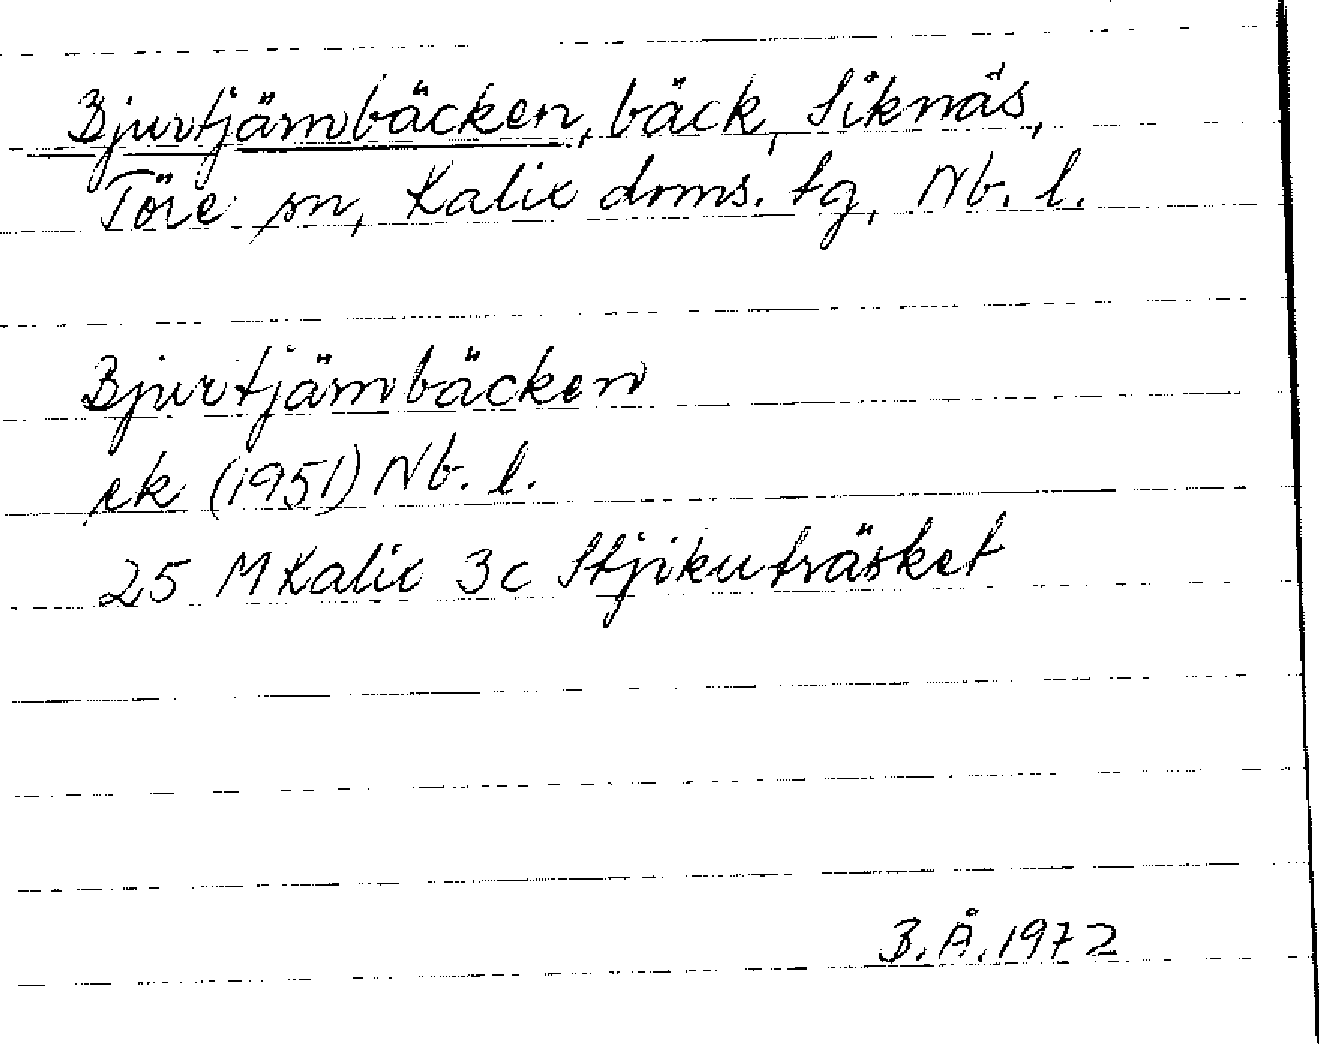 Bjurtjärnbäcken, bäck, Siknäs,
Töre sn, Kalix doms. tg, Nb. l.
Bjurtjärnbäcken
ek (1951) Nb. l.
25 M Kalix 3c Stjikuträsket
B.Å. 1972